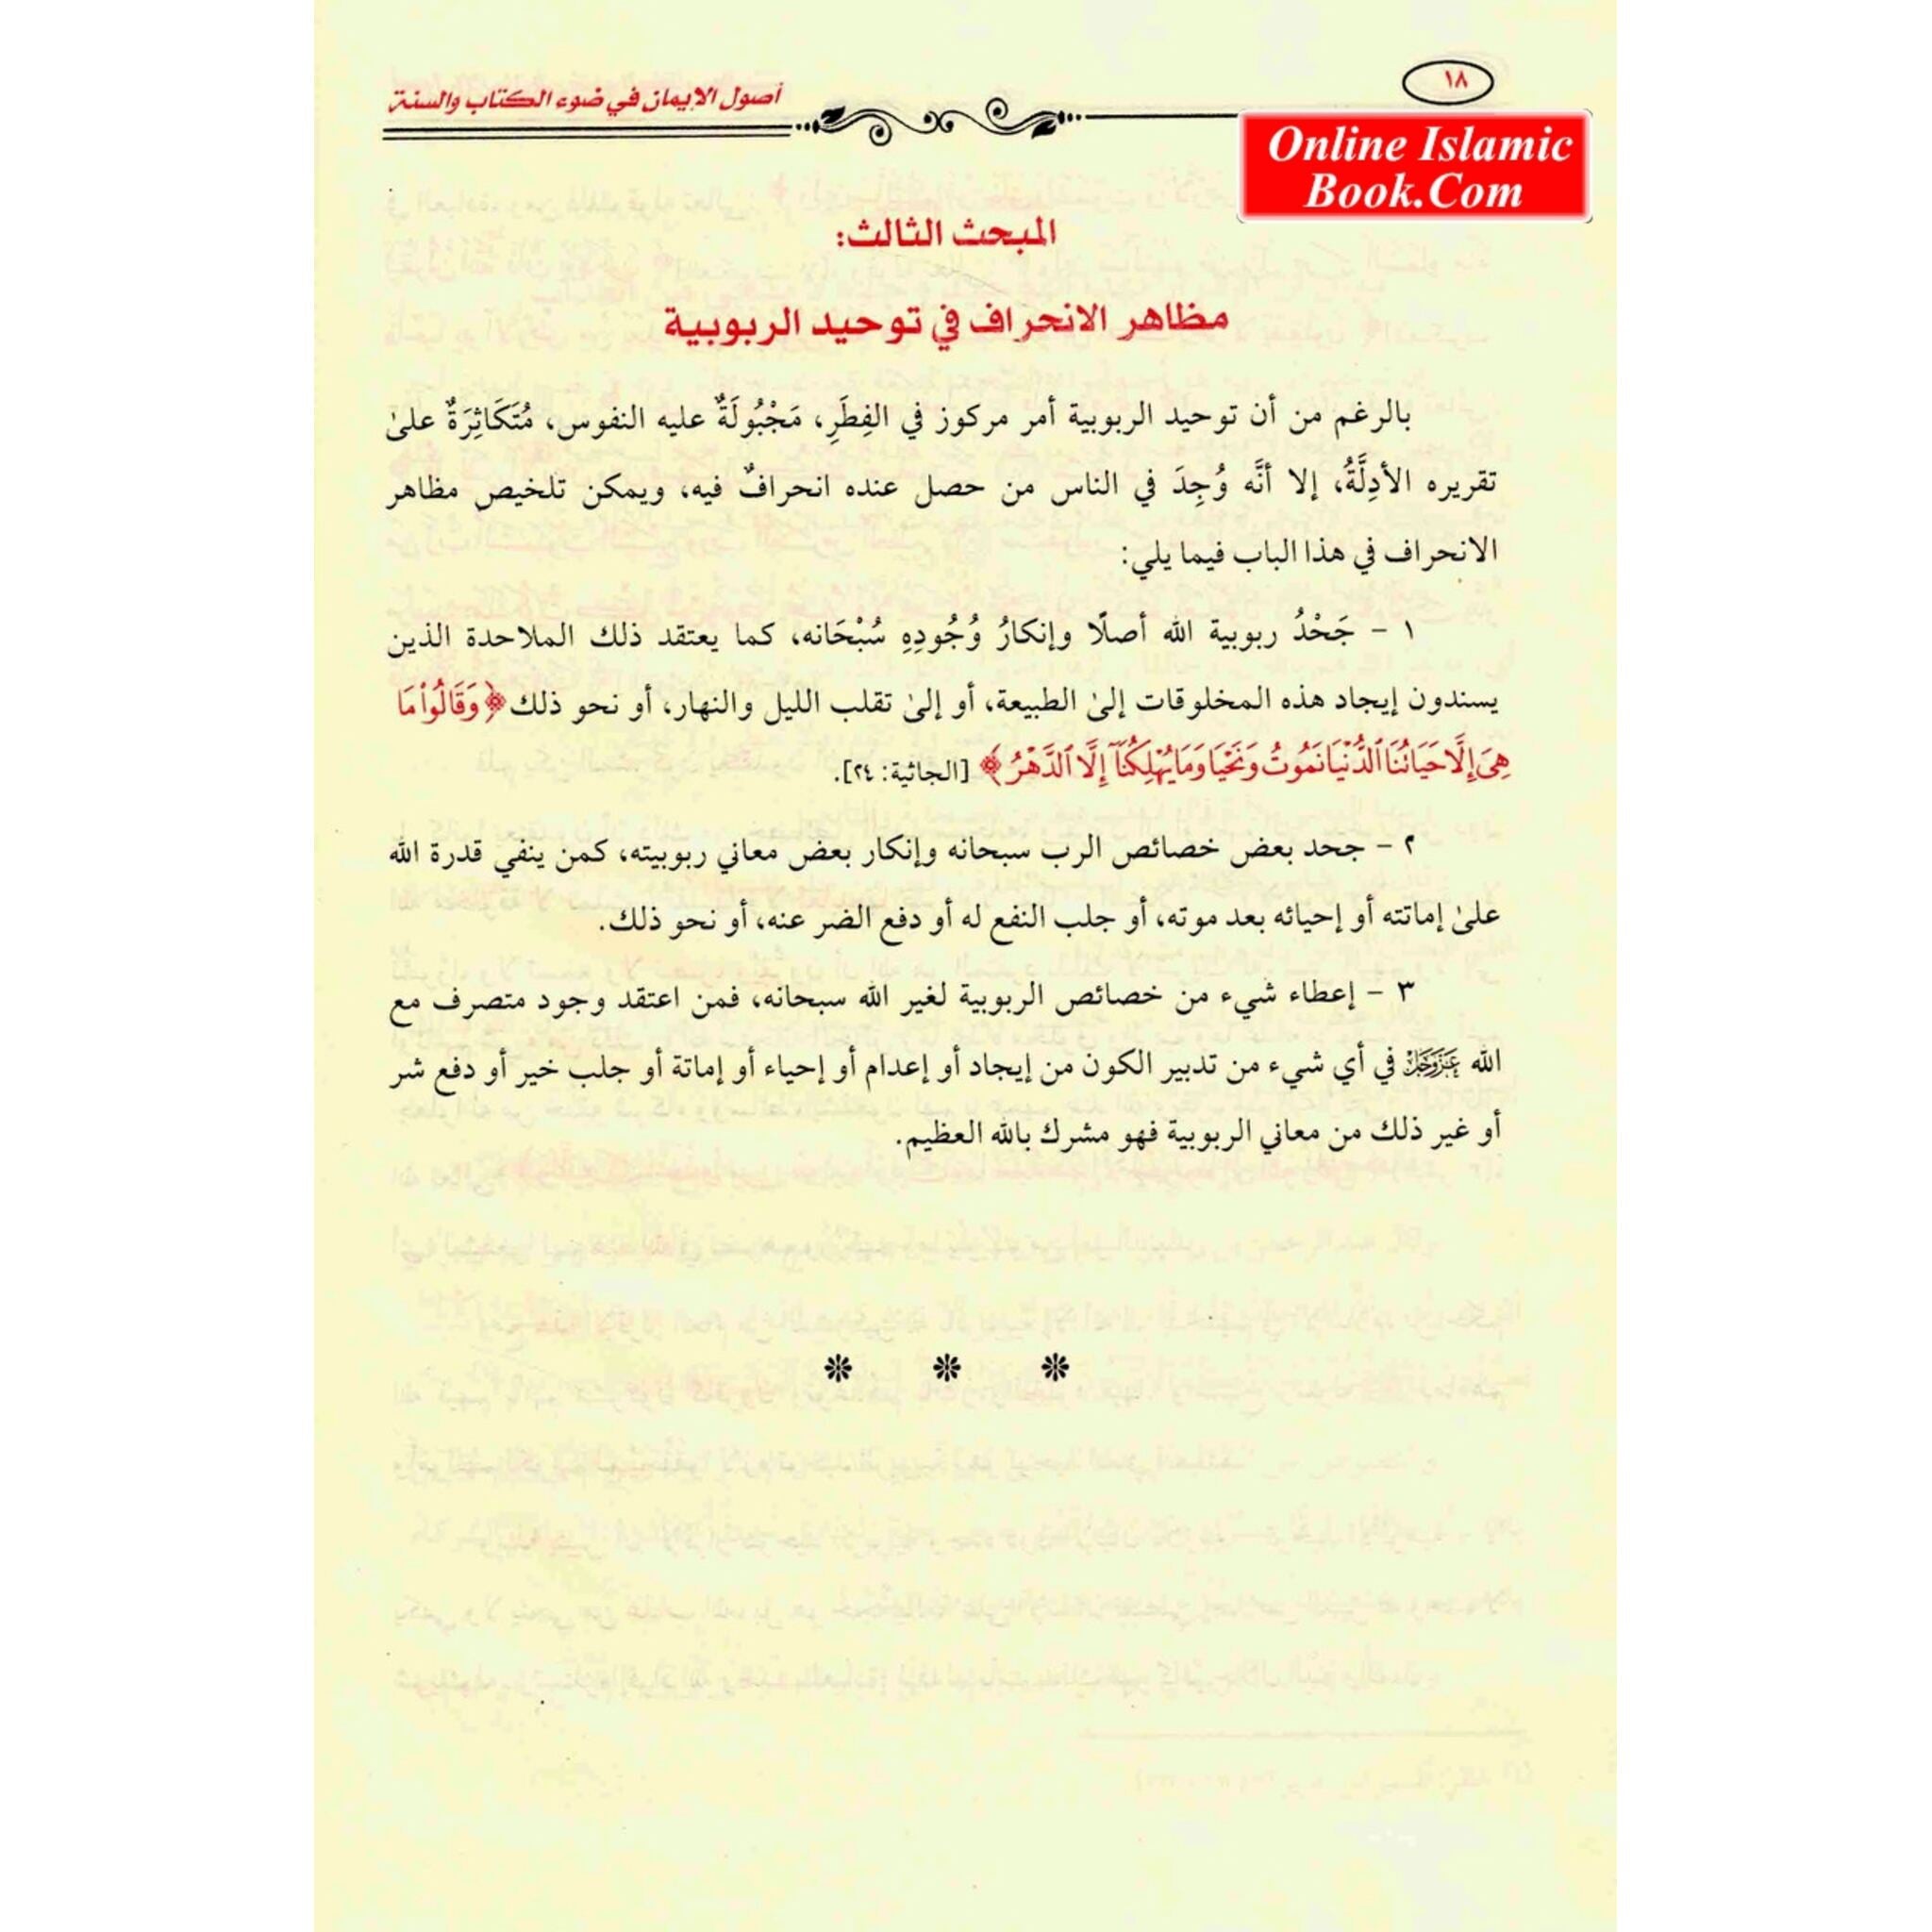 ١٨
أصول الإيمان في ضوء الكتاب والسنة
Online Islamic
Book.Com
المبحث الثالث:
مظاهر الانحراف في توحيد الربوبية
بالرغم من أن توحيد الربوبية أمر مركوز في الفِطَرِ، مَجْبُولَةٌ عليه النفوس، مُتَكَاثِرَةٌ علىٰ
تقريره الأدِلَّةُ، إلا أنَّه وُجِدَ في الناس من حصل عنده انحرافٌ فيه، ويمكن تلخيص مظاهر
الانحراف في هذا الباب فيما يلي:
١ - جَحْدُ ربوبية الله أصلًا وإنكارُ وُجُودِهِ سُبْحَانه، كما يعتقد ذلك الملاحدة الذين
يسندون إيجاد هذه المخلوقات إلىٰ الطبيعة، أو إلىٰ تقلب الليل والنهار، أو نحو ذلك ﴿وَقَالُوا۟ مَا
هِىَ إِلَّا حَيَاتُنَا ٱلدُّنْيَا نَمُوتُ وَنَحْيَا وَمَا يُهْلِكُنَآ إِلَّا ٱلدَّهْرُ﴾ [الجاثية: ٢٤].
٢ - جحد بعض خصائص الرب سبحانه وإنكار بعض معاني ربوبيته، كمن ينفي قدرة الله
علىٰ إماتته أو إحيائه بعد موته، أو جلب النفع له أو دفع الضر عنه، أو نحو ذلك.
٣ - إعطاء شيء من خصائص الربوبية لغير الله سبحانه، فمن اعتقد وجود متصرف مع
الله عَزَّوَجَلَّ في أي شيء من تدبير الكون من إيجاد أو إعدام أو إحياء أو إماتة أو جلب خير أو دفع شر
أو غير ذلك من معاني الربوبية فهو مشرك بالله العظيم.